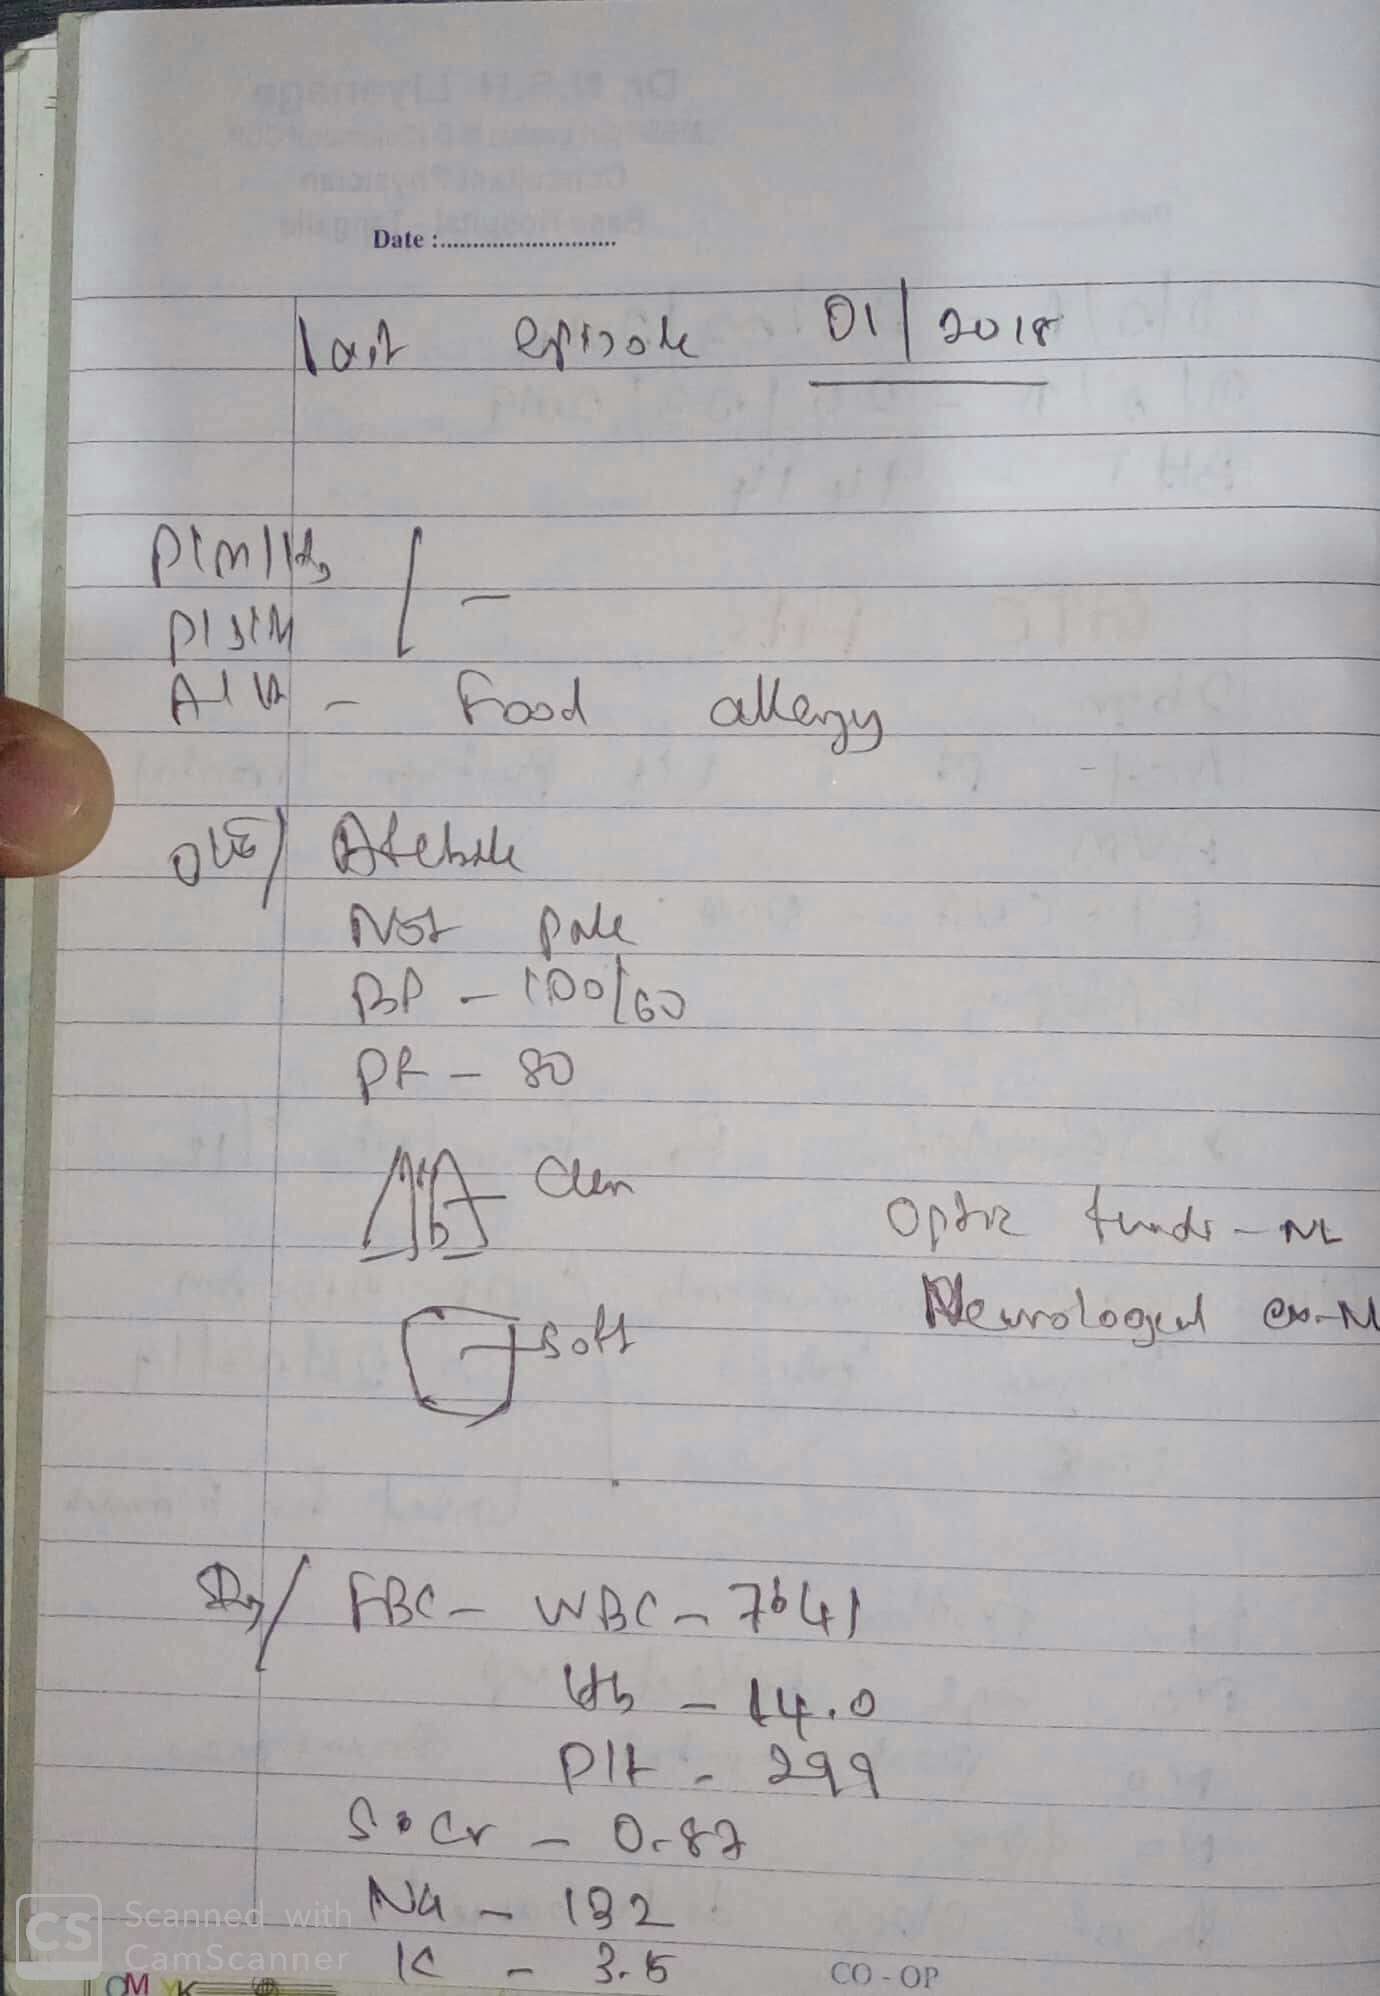 Date :............................
last episode 01/2018
P/M/Hx
P/S/H
A/Hx - Food allergy
O/E/ Afebrile
Not pale
BP - 100/60
PR - 80
clear
Optic fundi - NL
soft
Neurological ex - N
FBC - WBC - 7641
Hb - 14.0
Plt - 299
S. Cr - 0.87
Na - 132
K - 3.5
CO - OP
CS Scanned with
CamScanner